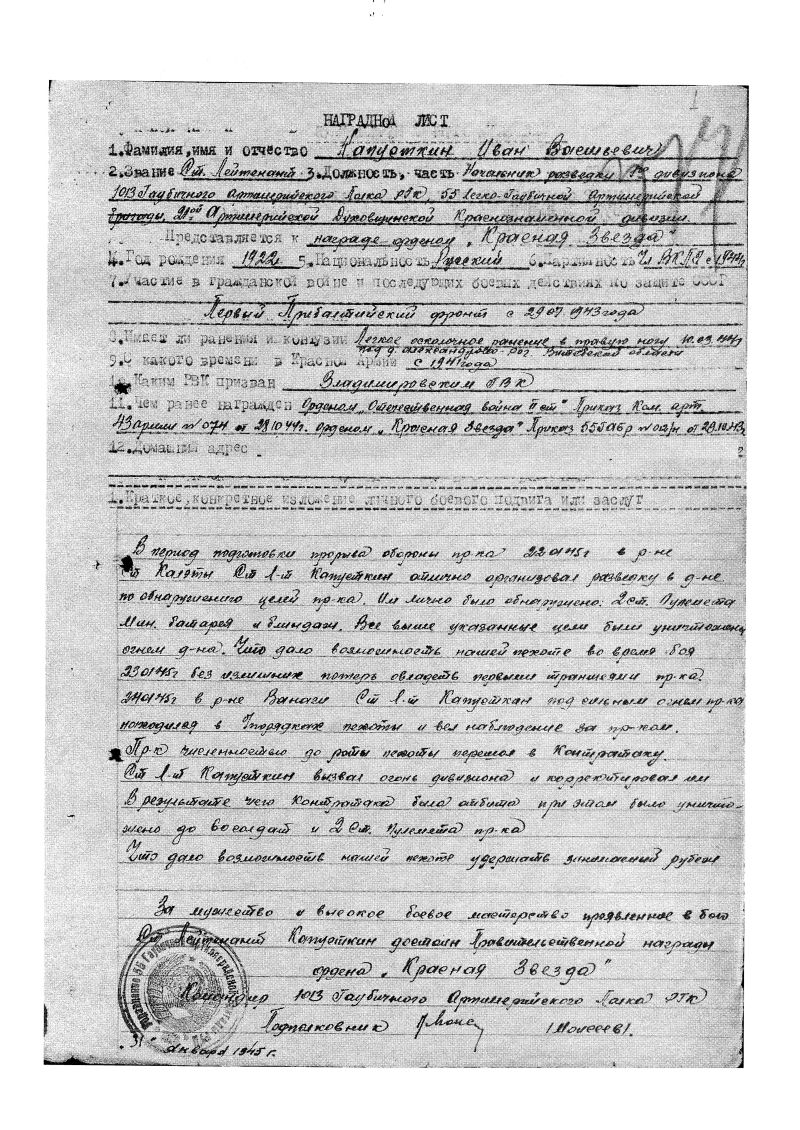 НАГРАДНОЙ ЛИСТ
1.Фамилия,имя и отчество Капусткин Иван Васильевич
2.Звание Ст. Лейтенант 3.Должность, часть Начальник разведки дивизиона
1013 Гаубичного Артиллерийского Полка РГК, 55 Легко-Гаубичной Артиллерийской
бригады, 21ой Артиллерийской Духовщинской Краснознаменной дивизии.
Представляется к награде орденом „Красная Звезда"
4.Год рождения 1922 5.Национальность Русский 6.Партийность Чл ВКПб с 1944г
7.Участие в гражданской войне и последующих боевых действиях по защите СССР
Первый Прибалтийский фронт с 29.07.1943 года
8.Имеет ли ранения и контузии Легкое осколочное ранение в правую ногу 10.03.44г
под д. Александрово Витебской области
9.С какого времени в Красной Армии с 1941 года
10.Каким РВК призван Владимировским ГВК
11.Чем ранее награжден Орденом „Отечественная война II ст" Приказ Ком. арт.
43 армии №074 от 28.10.44г. орденом „Красная Звезда" Приказ 55 ГАбр №012/н от 29.10.43г
12.Домашний адрес
1.Краткое,конкретное изложение личного боевого подвига или заслуг
В период подготовки прорыва обороны пр-ка 22.01.45г в р-не
Ст Каляты Ст л-т Капусткин отлично организовал разведку в д-не
по обнаружению целей пр-ка. Им лично было обнаружено: 2 ст. Пулемета
Мин. батарея и блиндаж. Все выше указанные цели были уничтожены
огнем д-на. Что дало возможность нашей пехоте во время боя
23.01.45г без излишних потерь овладеть первыми траншеями пр-ка.
24.01.45г в р-не Ванаги Ст л-т Капусткин под сильным огнем пр-ка
находился в порядках пехоты и вел наблюдение за пр-ком.
Пр-к численностью до роты пехоты перешол в Контратаку.
Ст л-т Капусткин вызвал огонь дивизиона и корректировал им
В результате чего Контратака была отбита при этом было уничто-
жено до 60 солдат и 2 Ст. Пулемета пр-ка
Что дало возможность нашей пехоте удержать занимаемый рубеж
За мужество и высокое боевое мастерство проявленное в бою
Ст Лейтенант Капусткин достоин Правительственной награды
ордена „Красная Звезда"
Командир 1013 Гаубичного Артиллерийского Полка РГК
Подполковник (Моисеев).
„31" Января 1945 г.